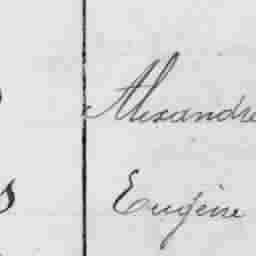 Alexandre
Eugène